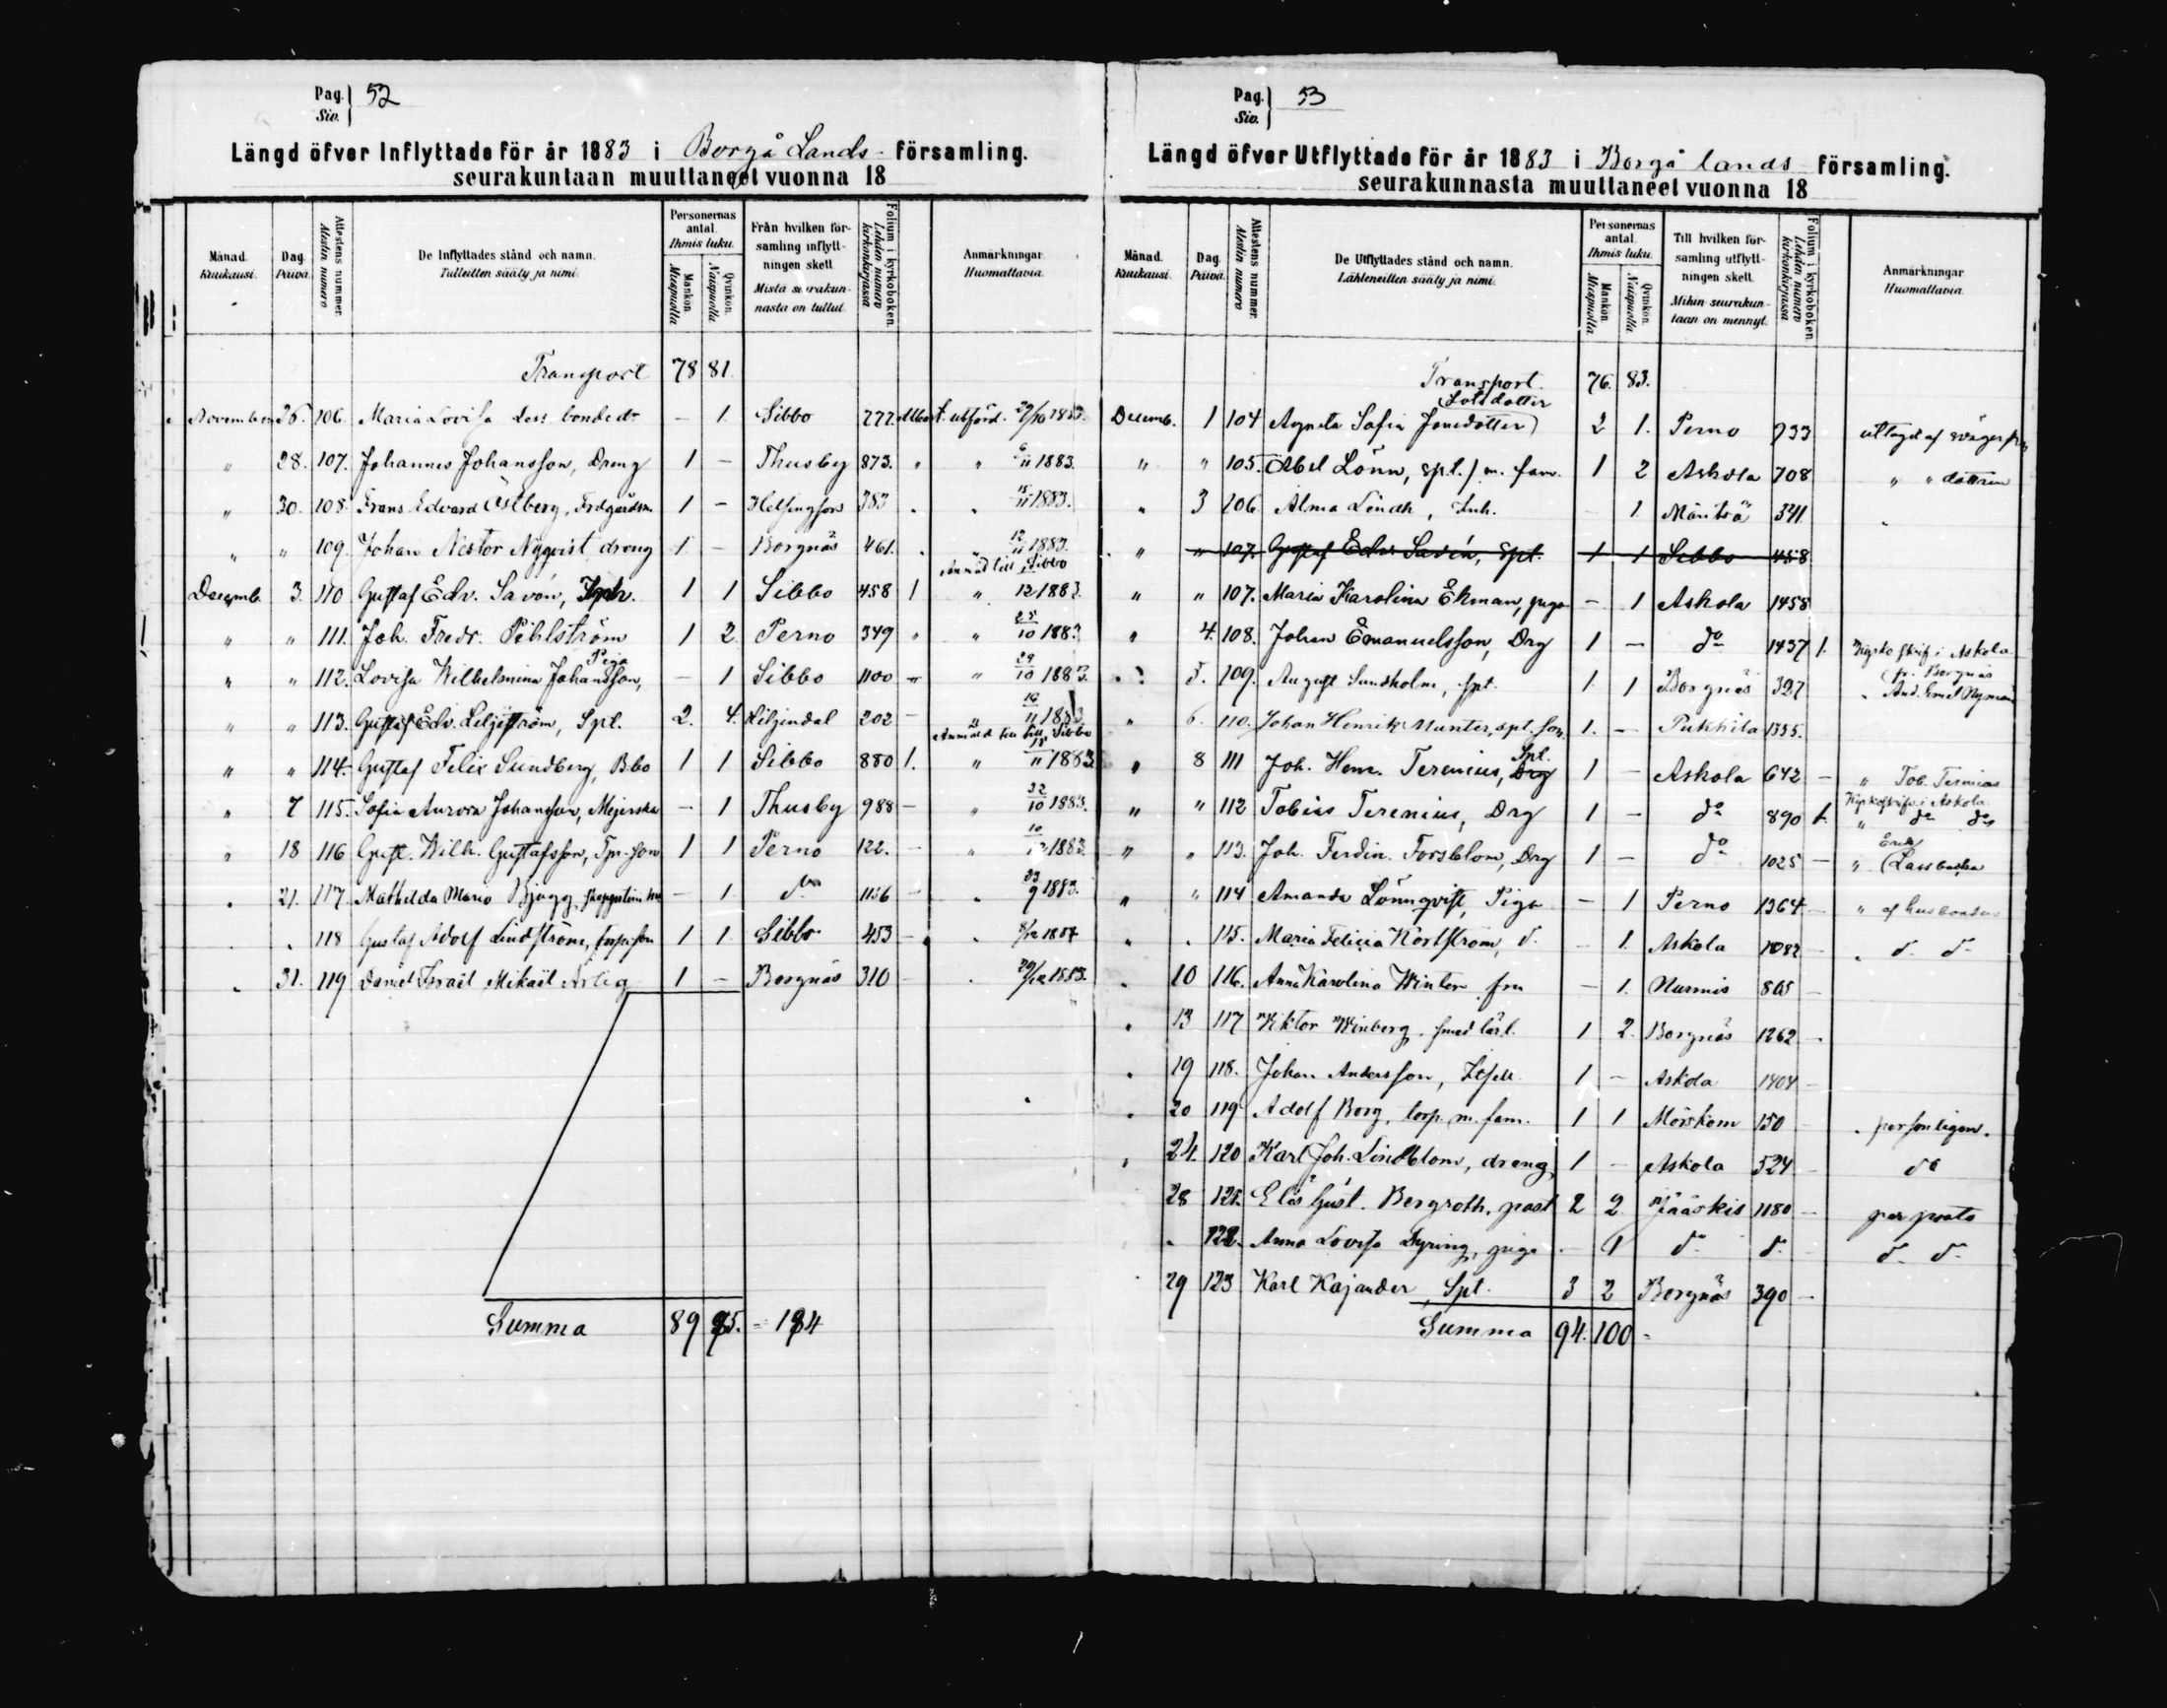 Pag. 52
Siv.
Längd öfver Inflyttade för år 1883 i Borgå Lands- församling.
seurakuntaan muuttaneet vuonna 18
Månad. Kuukausi. Dag. Päivä. Attestens nummer. Alestin numero De Inflyttades stånd och namn. Tulleitten sääty ja nimi. Personernas antal. Ihmis luku. Mankön. Miespuolia Qvinkön. Naispuolia Från hvilken församling inflyttningen skett. Mistä seurakunnasta on tullut. Folium i kyrkoboken. Lehden numero kirkonkirjassa Anmärkningar. Huomattavia.
Transport 78 81.
November 26. 106. Maria Lovisa bonded. – 1. Sibbo 277. utfärd. 29/10 1883.
„ 28. 107. Johannes Johansson, Dreng 1 – Thusby 873. „ „ 6/11 1883.
„ 30. 108. Frans Edvard Östberg, 1 – Helsingfors 383 „ 15/11 1883.
„ „ 109. Johan Nestor Nyqvist, dreng 1. – Borgnäs 461. „ 12/11 1883.
Anmäld till Sibbo
Decemb. 3. 110 Gustaf Edv. Savón, 1 1 Sibbo 458 1 „ 12 1883.
„ „ 111. Joh. Fredr. Pihlström 1 2 Perno 349 „ „ 25/10 1883.
„ „ 112. Lovisa Wilhelmina Johansson, Piga – 1 Sibbo 1100 – „ 29/10 1883.
„ „ 113. Gustaf Edv. Liljeström, Spl. 2. 4. Liljendal 202 – „ 11 1883
Anmäld till Sibbo
„ „ 114. Gustaf Felix Sundberg, Bbo 1 1 Sibbo 880 1. „ 11 1883
„ 7 115. Sofia Aurora Johansson, Mejerska – 1 Thusby 988 – „ 22/10 1883.
„ 18 116 Gust. Wilh. Gustafsson, Tpr. son 1 1 Perno 122. – „ 1883.
„ 21. 117. Mathilda Maria Bjugg, – 1. do 1156 – „ 23/9 1883.
„ „ 118 Gustaf Adolf Lindström, torp. son 1 1 Sibbo 453 –
„ 31. 119 Daniel Israël Mikaël Artig 1 – Borgnäs 310 – „ 1883.
Summa 89 95. = 184
Pag. 53
Siv.
Längd öfver Utflyttade för år 1883 i Borgå lands församling.
seurakunnasta muuttaneet vuonna 18
Månad. Kuukausi. Dag. Päivä. Attestens nummer. Alestin numero De Utflyttades stånd och namn. Lähteneitten sääty ja nimi. Personernas antal. Ihmis luku. Mankön. Miespuolia. Qvinkön. Naispuolia. Till hvilken församling utflyttningen skett. Mihin seurakuntaan on mennyt. Folium i kyrkoboken. Lehden numero kirkonkirjassa Anmärkningar Huomattavia.
Transport. 76. 83.
Lotsdotter
Decemb. 1 104 Agneta Sofia Jonsdotter 2 1. Perno 933 uttagit af
„ „ 105. Abel Lönn, spl. m. fam. 1 2 Askola 708 „ „ dottren
„ 3 106 Alma Lindh, Inh. – 1. Mäntsä 341
„ „ 107. Gustaf Edv. Savén, Spl. 1 1 Sibbo 458
„ „ 107. Maria Karolina Ekman, piga – 1 Askola 1458
„ 4. 108. Johan Emanuelsson, Drg 1 – do 1437 1. i Askola
„ 5. 109. August Sundholm, spt. 1 1 Borgnäs 327 Borgnäs „ And. Emel Nyman
„ 6. 110. Johan Henrik Munter, spl. son. 1. – Pukkila 1335.
„ 8 111 Joh. Henr. Terenius, Drg Spl. 1 – Askola 642 – „ Tob. Terenius
„ „ 112 Tobias Terenius, Drg 1 – do 890 1. i Askola „ do do
„ „ 113. Joh. Ferdin. Forsblom, Drg 1 – do 1025 – „ Erik
„ „ 114 Amanda Lönnqvist, Piga – 1 Perno 1364 – „ af husbonden
„ „ 115. Maria Felicia Kortström, d. – 1. Askola 1082 – „ d. d.
„ 10 116. Anna Karolina Winter fru – 1. Nurmis 805 –
„ 13 117 Viktor Winberg, smed lärl. 1 2. Borgnäs 1262 –
„ 19 118. Johan Andersson, 1 – Askola 1404 –
„ 20 119 Adolf Borg, torp. m. fam. 1 1 Mörskom 150 – „ personligen.
„ 24. 120 Karl Joh. Lindblom, dreng, 1 – Askola 524 – do
28 121. Elis Gust. Bergroth, past 2 2 Jääskis 1180 – per posto
„ 122. Anna Lovisa Dyring, piga – 1 do d. d. d.
29 123 Karl Kajander, Spl. 3 2 Borgnäs 390 –
Summa 94. 100 –